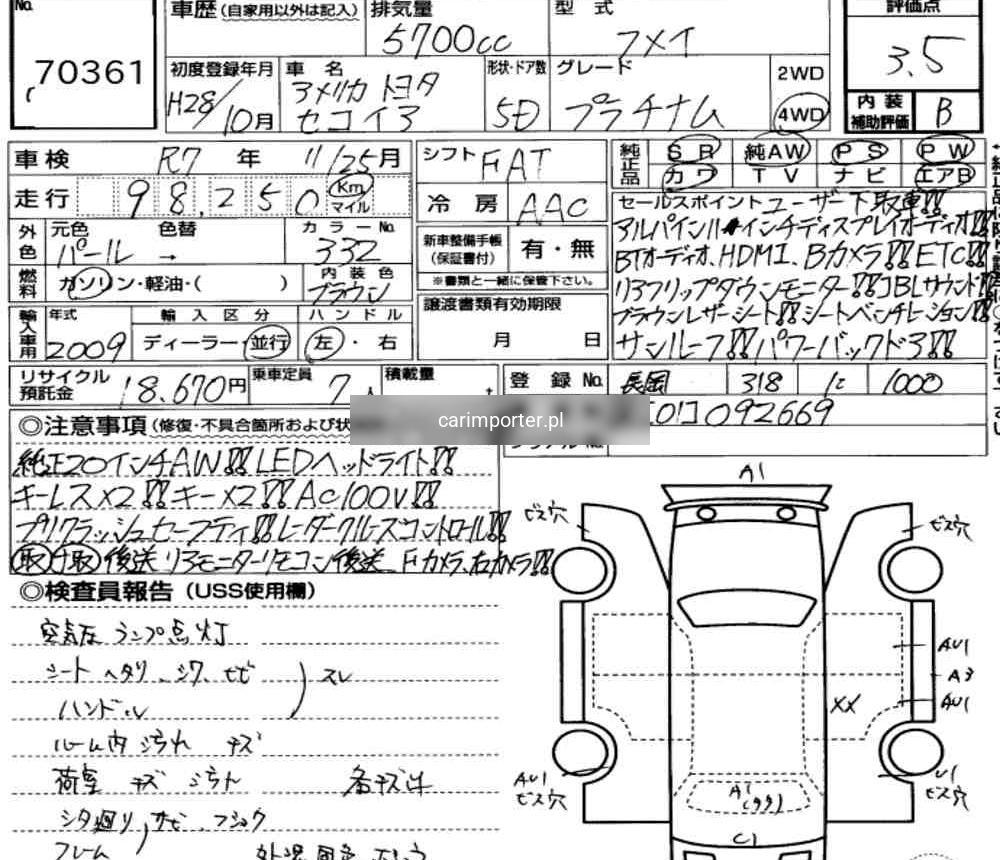 No.
70361
車歴 (自家用以外は記入)
排気量
5700cc
型式
フメイ
評価点
3.5
初度登録年月
H28/10月
車名
アメリカ トヨタ
セコイア
形状・ドア数
5D
グレード
プラチナム
2WD
4WD
内装
補助評価
B
車検 R7年 11/25月
シフト FAT
純正品
SR 純AW PS PW
カワ TV ナビ エアB
走行 98,250 Km
マイル
冷房 AAC
セールスポイント ユーザー下取車!!
アルパイン11インチディスプレイオーディオ!!
BTオーディオ、HDMI、Bカメラ!!ETC!!
リアフリップダウンモニター!!JBLサウンド!!
ブラウンレザーシート!!シートベンチレーション!!
サンルーフ!!パワーバックドア!!
外色
元色 色替 カラーNo.
パール → 332
新車整備手帳
(保証書付)
有・無
※書類と一緒に保管下さい。
燃料
ガソリン・軽油・( )
内装色
ブラウン
譲渡書類有効期限
月 日
輸入車用
年式
2009
輸入区分
ディーラー・並行
ハンドル
左・右
リサイクル
預託金
18,670円
乗車定員
7人
積載量
t
登録No.
長岡 318 に 1000
carimporter.pl
092669
◎注意事項 (修復・不具合箇所および状
純正20インチAW!!LEDヘッドライト!!
キーレス×2!!キー×2!!AC100V!!
プリクラッシュセーフティ!!レーダークルーズコントロール!!
取 付取 後送 リアモニターリモコン後送 Fカメラ、右カメラ!!
◎検査員報告 (USS使用欄)
空気圧ランプ点灯
シート ヘタリ、シワ、セビ
ハンドル
スレ
ルーム内 汚れ キズ
荷室 キズ 汚れ
各キズ凹
シタ廻り サビ フショク
フレーム
A1
ビス穴
ビス穴
AU1
A3
AU1
XX
AU1
ビス穴
U1
ビス穴
A1
C1